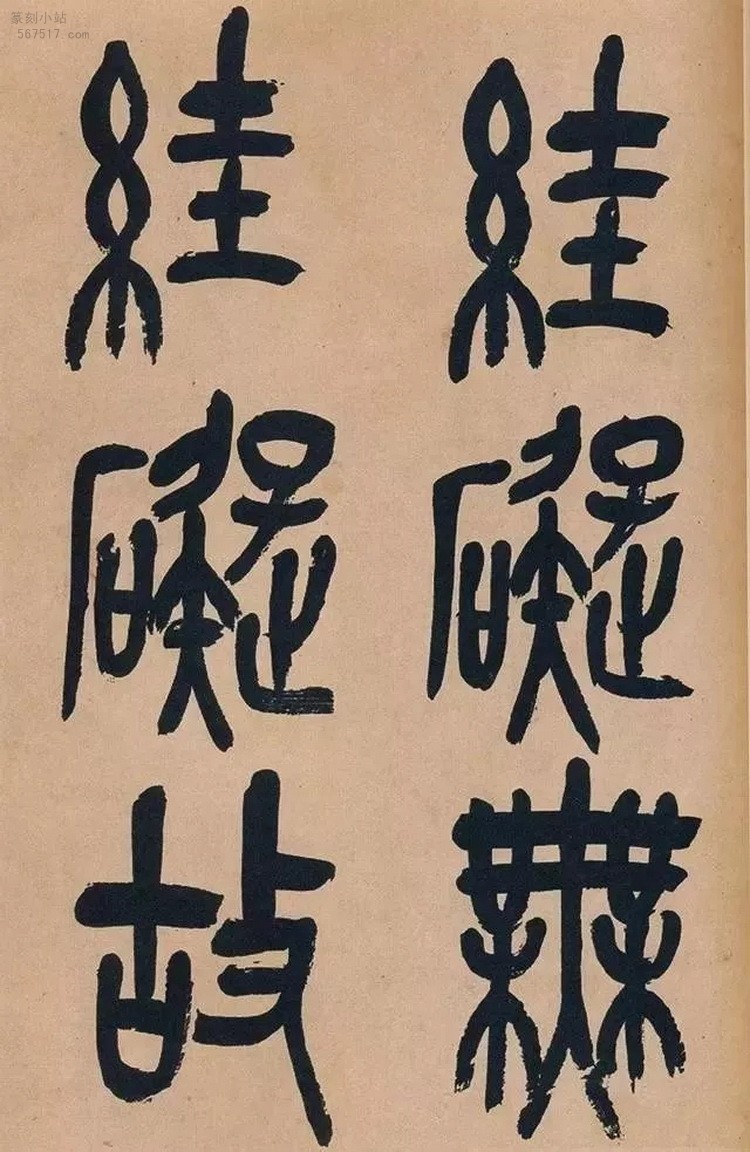 絓礙無
絓礙故
篆刻小站
567517.com